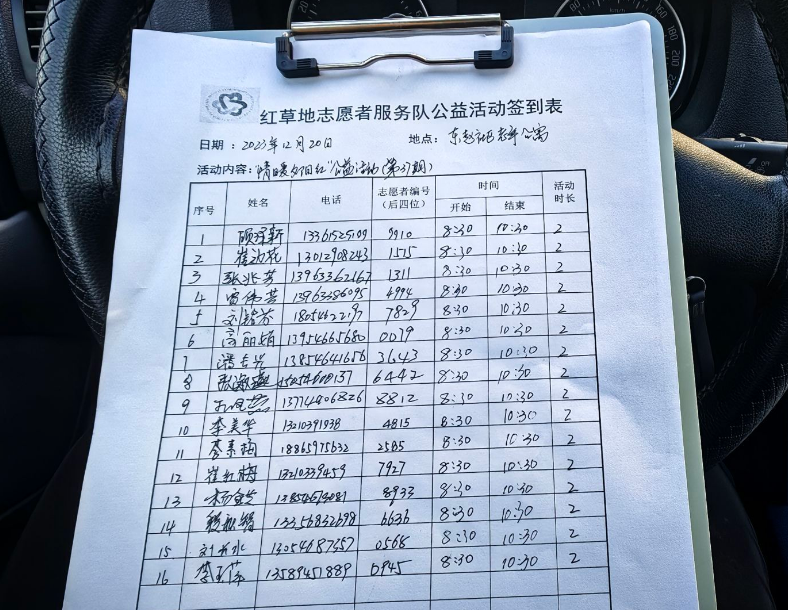 红草地志愿者服务队公益活动签到表
日期：2023年12月20日 地点：东赵社区老年公寓
活动内容："情暖夕阳红"公益活动(第37期)
序号 姓名 电话 志愿者编号（后四位） 时间 开始 结束 活动时长
1 13361525109 9910 8:30 10:30 2
2 崔 花 13012908243 1515 8:30 10:30 2
3 张兆芳 13963362167 1311 8:30 10:30 2
4 伟芳 13963386095 4994 8:30 10:30 2
5 刘 芬 18054622197 7829 8:30 10:30 2
6 高丽娟 13954665680 0079 8:30 10:30 2
7 13854641656 3643 8:30 10:30 2
8 张 6442 8:30 10:30 2
9 13774906826 8812 8:30 10:30 2
10 李美华 13210391938 4815 8:30 10:30 2
11 李素梅 18865975632 2585 8:30 10:30 2
12 崔红梅 13210339459 7927 8:30 10:30 2
13 杨 13854673081 8933 8:30 10:30 2
14 13356832698 6636 8:30 10:30 2
15 刘 水 13054687357 0568 8:30 10:30 2
16 李玉萍 13589451889 0945 8:30 10:30 2